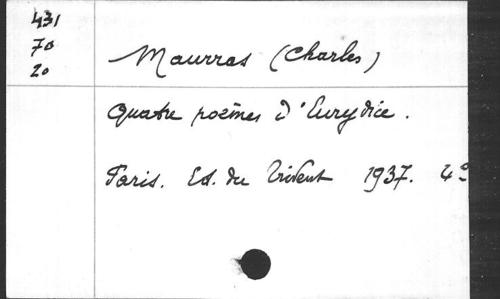 431
70
20
Maurras (Charles)
Quatre poèmes d'Eurydice.
Paris. Ed. du Trident 1937. 4°